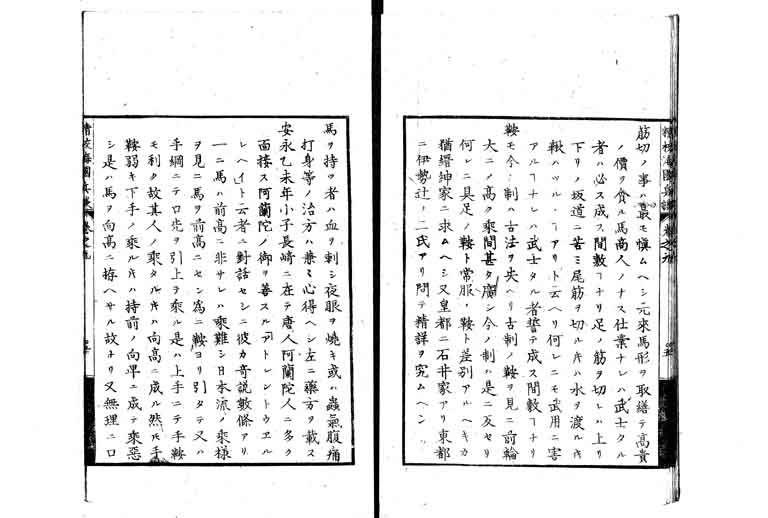 筋切ノ事ハ最モ愼ムヘシ元來馬形ヲ取繕テ高貴
ノ價ヲ貪ル馬商人ノナス仕業ナレハ武士タル
者ハ必ス成ス間敷ヿナリ足ノ筋ヲ切レハ上リ
下リノ坂道ニ苦ミ尾筋ヲ切ル𪜈ハ水ヲ渡ル𪜈
ハヿアリト云ヘリ何レニモ武用ニ害
アルヿナレハ武士タル者誓テ成ス間敷ヿナリ
鞍モ今ノ制ハ古法ヲ失ヘリ古制ノ鞍ヲ見ニ前輪
大ニノ高ク乘間甚タ廣シ今ノ制ハ是ニ反セリ
何レニ具足ノ鞍ト常服ノ鞍ト差別アルヘキカ
猶縉紳家ニ求ムヘシ又皇都ニ石井家アリ東都
ニ伊勢辻ノ二氏アリ問テ精詳ヲ究ムヘシ
馬ヲ持ツ者ハ血ヲ刺シ夜眼ヲ燒キ或ハ蟲氣腹痛
打身等ノ治方ハ兼々心得ヘシ左ニ藥方ヲ載ス
安永乙未年小子長崎ニ在テ唐人阿蘭陀人ニ多ク
面接ス阿蘭陀ノ御ヲ善スルアトレントウエル
レヘイト云者ニ對話セシニ彼カ奇說數條アリ
一ニ馬ハ前高ニ非サレハ乘難シ日本流ノ乘様
ヲ見ニ馬ヲ前高ニセン爲ニ鞍ヨリ引タテ又ハ
手綱ニテ口先ヲ引上テ乘ル是ハ上手ニテ手鞍
モ利タ故其人ノ乘タル𪜈ハ向高ニ成ル然𪜈手
鞍弱キ下手ノ乘ル𪜈ハ持前ノ向卑ニ成テ乘惡
シ是ハ馬ヲ向高ニ拵ヘサル故ナリ又無理ニ口
精校海國兵談 卷之九